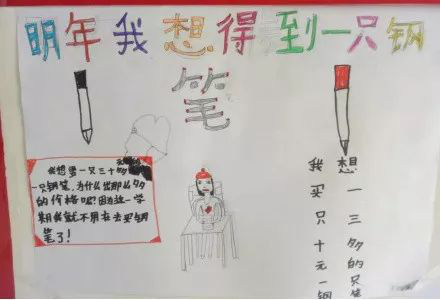 明年我想得到一只钢
笔
我想要一只三十多
一只钢笔,为什么出那么多
的价格呢?因为这一学
期我就不用在去买钢
笔了!
我想
买一
只三
十多
元的
一只
钢笔